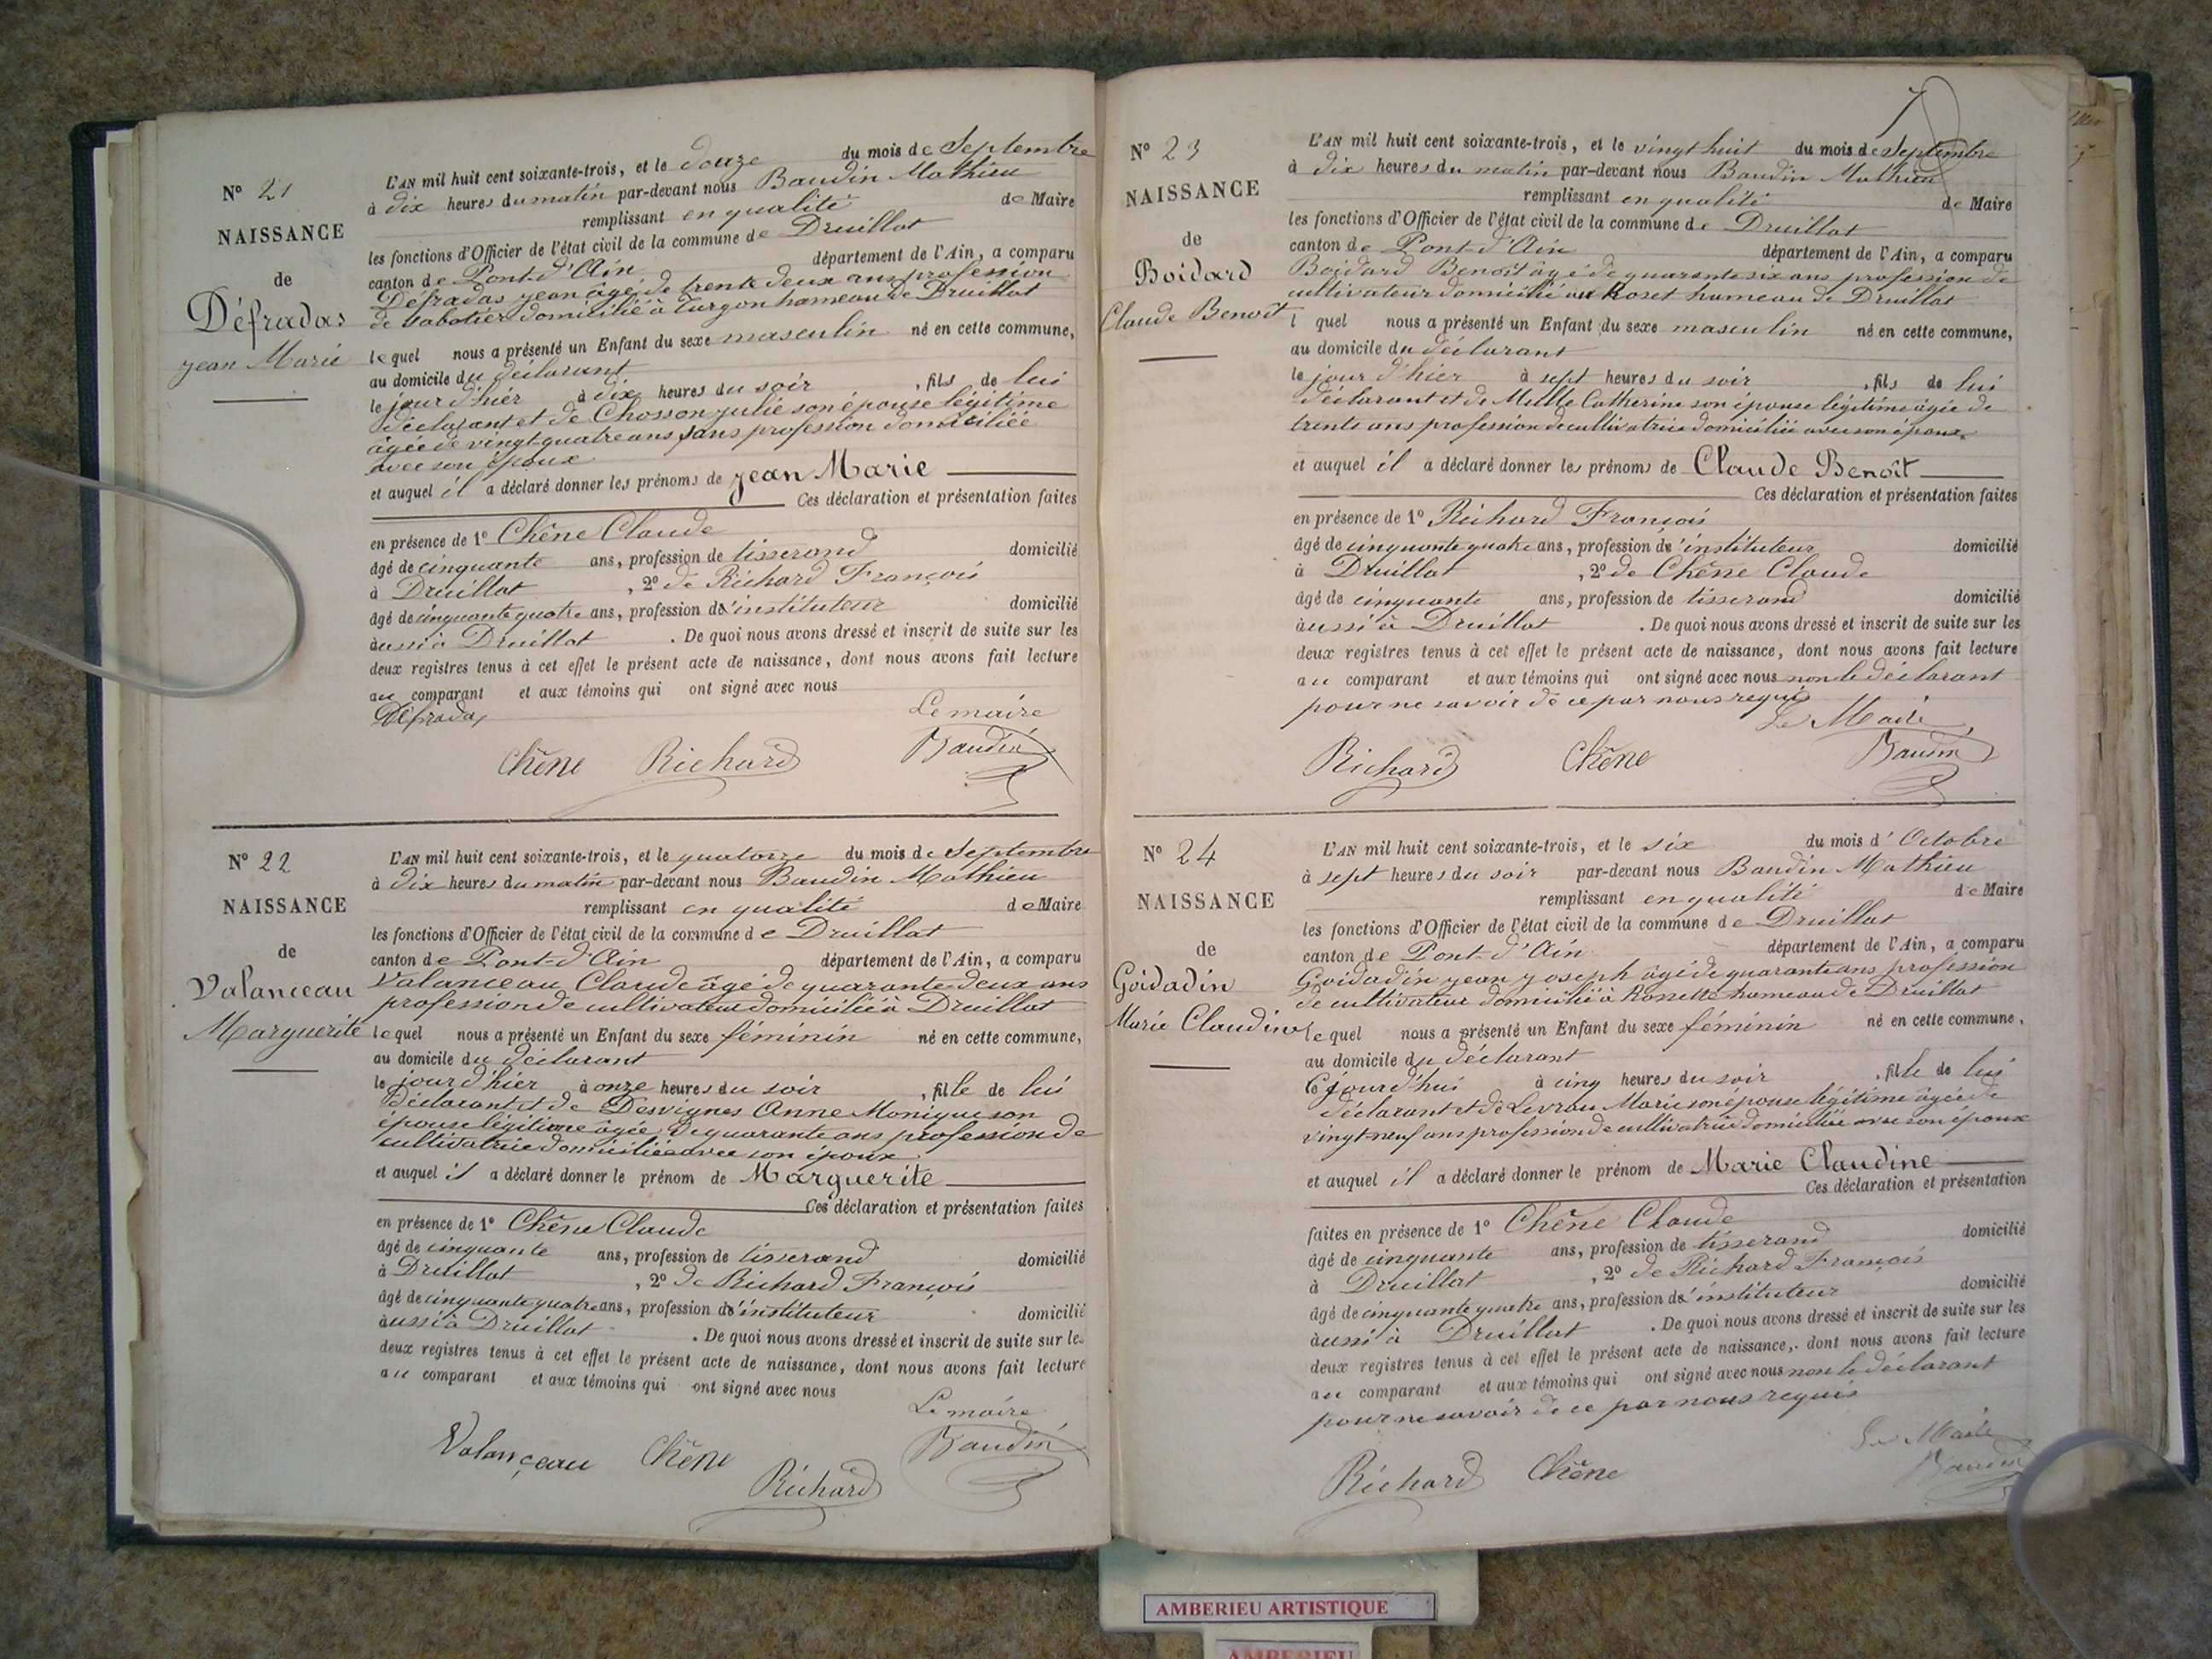 N° 21
NAISSANCE
de
Défradas
jean Marie
L'AN mil huit cent soixante-trois, et le douze du mois de Septembre
à dix heures du matin par-devant nous Baudin Mathieu
remplissant en qualité de Maire
les fonctions d'Officier de l'état civil de la commune de Druillat
canton de Pont-d'Ain département de l'Ain, a comparu
Défradas jean âgé de trente deux ans profession
de sabotier domicilié à Turgon hameau de Druillat
lequel nous a présenté un Enfant du sexe masculin né en cette commune,
au domicile du déclarant
le jour d'hier à dix heures du soir, fils de lui
déclarant et de Chosson julie son épouse légitime
âgée de vingt-quatre ans sans profession domiciliée
avec son époux
et auquel il a déclaré donner les prénoms de jean Marie
Ces déclaration et présentation faites
en présence de 1° Chêne Claude
âgé de cinquante ans, profession de tisserand domicilié
à Druillat, 2° de Richard François
âgé de cinquante quatre ans, profession d'instituteur domicilié
aussi à Druillat. De quoi nous avons dressé et inscrit de suite sur les
deux registres tenus à cet effet le présent acte de naissance, dont nous avons fait lecture
au comparant et aux témoins qui ont signé avec nous
Défradas Le maire
Chêne Richard Baudin
N° 22
NAISSANCE
de
Valanceau
Marguerite
L'AN mil huit cent soixante-trois, et le quatorze du mois de Septembre
à dix heures du matin par-devant nous Baudin Mathieu
remplissant en qualité de Maire
les fonctions d'Officier de l'état civil de la commune de Druillat
canton de Pont-d'Ain département de l'Ain, a comparu
Valanceau Claude âgé de quarante deux ans
profession de cultivateur domicilié à Druillat
lequel nous a présenté un Enfant du sexe féminin né en cette commune,
au domicile du déclarant
le jour d'hier à onze heures du soir, fille de lui
déclarant et de Desvignes Anne Monique son
épouse légitime âgée de quarante ans profession de
cultivatrice domiciliée avec son époux
et auquel il a déclaré donner le prénom de Marguerite
Ces déclaration et présentation faites
en présence de 1° Chêne Claude
âgé de cinquante ans, profession de tisserand domicilié
à Druillat, 2° de Richard François
âgé de cinquante quatre ans, profession d'instituteur domicilié
aussi à Druillat. De quoi nous avons dressé et inscrit de suite sur les
deux registres tenus à cet effet le présent acte de naissance, dont nous avons fait lecture
au comparant et aux témoins qui ont signé avec nous
Le maire
Valançeau Chêne Baudin
Richard
7
N° 23
NAISSANCE
de
Boidard
Claude Benoît
L'AN mil huit cent soixante-trois, et le vingt huit du mois de Septembre
à dix heures du matin par-devant nous Baudin Mathieu
remplissant en qualité de Maire
les fonctions d'Officier de l'état civil de la commune de Druillat
canton de Pont-d'Ain département de l'Ain, a comparu
Boidard Benoît âgé de quarante six ans profession de
cultivateur domicilié au Roset hameau de Druillat
l quel nous a présenté un Enfant du sexe masculin né en cette commune,
au domicile du déclarant
le jour d'hier à sept heures du soir, fils de lui
déclarant et de Catherine son épouse légitime âgée de
trente ans profession de cultivatrice domiciliée avec son époux
et auquel il a déclaré donner les prénoms de Claude Benoît
Ces déclaration et présentation faites
en présence de 1° Richard François
âgé de cinquante quatre ans, profession d'instituteur domicilié
à Druillat, 2° de Chêne Claude
âgé de cinquante ans, profession de tisserand domicilié
aussi à Druillat. De quoi nous avons dressé et inscrit de suite sur les
deux registres tenus à cet effet le présent acte de naissance, dont nous avons fait lecture
au comparant et aux témoins qui ont signé avec nous non le déclarant
pour ne savoir de ce par nous requis
Le Maire
Richard Chêne Baudin
N° 24
NAISSANCE
de
Goidadin
Marie Claudine
L'AN mil huit cent soixante-trois, et le six du mois d'Octobre
à sept heures du soir par-devant nous Baudin Mathieu
remplissant en qualité de Maire
les fonctions d'Officier de l'état civil de la commune de Druillat
canton de Pont-d'Ain département de l'Ain, a comparu
Goidadin jean joseph âgé de quarante ans profession
de cultivateur domicilié à Rossette hameau de Druillat
lequel nous a présenté un Enfant du sexe féminin né en cette commune,
au domicile du déclarant
Cejourd'hui à cinq heures du soir, fille de lui
déclarant et de Levrau Marie son épouse légitime âgée de
vingt-neuf ans profession de cultivatrice domiciliée avec son époux
et auquel il a déclaré donner le prénom de Marie Claudine
Ces déclaration et présentation
faites en présence de 1° Chêne Claude
âgé de cinquante ans, profession de tisserand domicilié
à Druillat, 2° de Richard François
âgé de cinquante quatre ans, profession d'instituteur domicilié
aussi à Druillat. De quoi nous avons dressé et inscrit de suite sur les
deux registres tenus à cet effet le présent acte de naissance, dont nous avons fait lecture
au comparant et aux témoins qui ont signé avec nous non le déclarant
pour ne savoir de ce par nous requis
Le Maire
Richard Chêne Baudin
AMBERIEU ARTISTIQUE
AMBERIEU